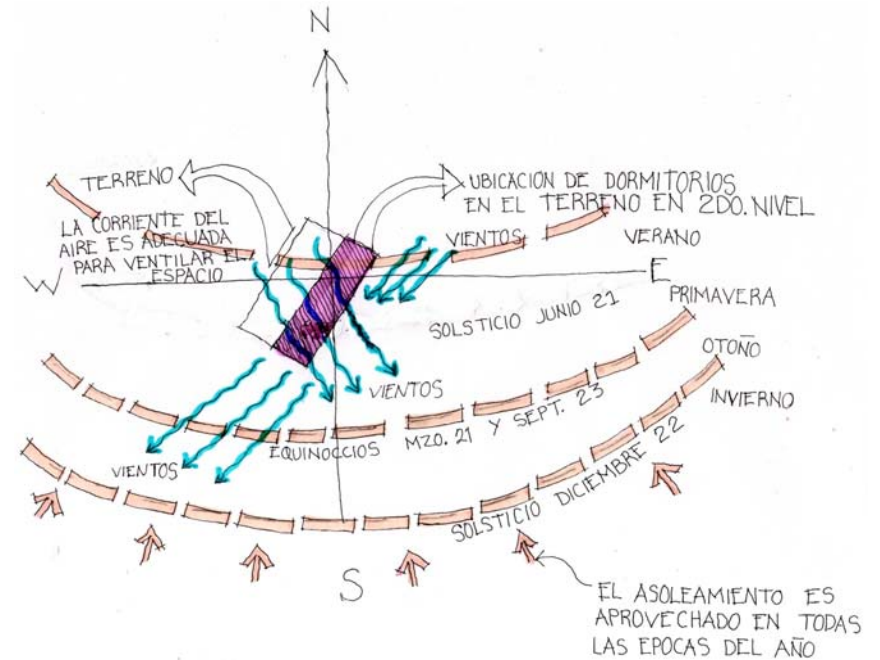 N
TERRENO
UBICACION DE DORMITORIOS
EN EL TERRENO EN 2DO. NIVEL
LA CORRIENTE DEL
AIRE ES ADECUADA
PARA VENTILAR EL
ESPACIO
VIENTOS
VERANO
W
E
PRIMAVERA
SOLSTICIO JUNIO 21
OTOÑO
VIENTOS
INVIERNO
EQUINOCCIOS MZO. 21 Y SEPT. 23
VIENTOS
SOLSTICIO DICIEMBRE 22
S
EL ASOLEAMIENTO ES
APROVECHADO EN TODAS
LAS EPOCAS DEL AÑO